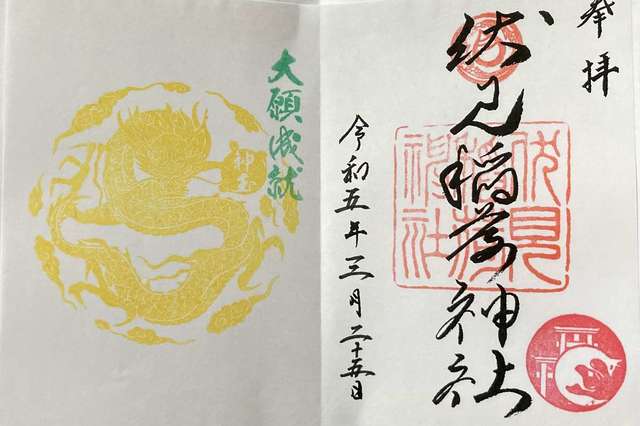 奉拝
伏見稲荷神社
伏見稲荷神社
令和五年三月二十五日
大願成就